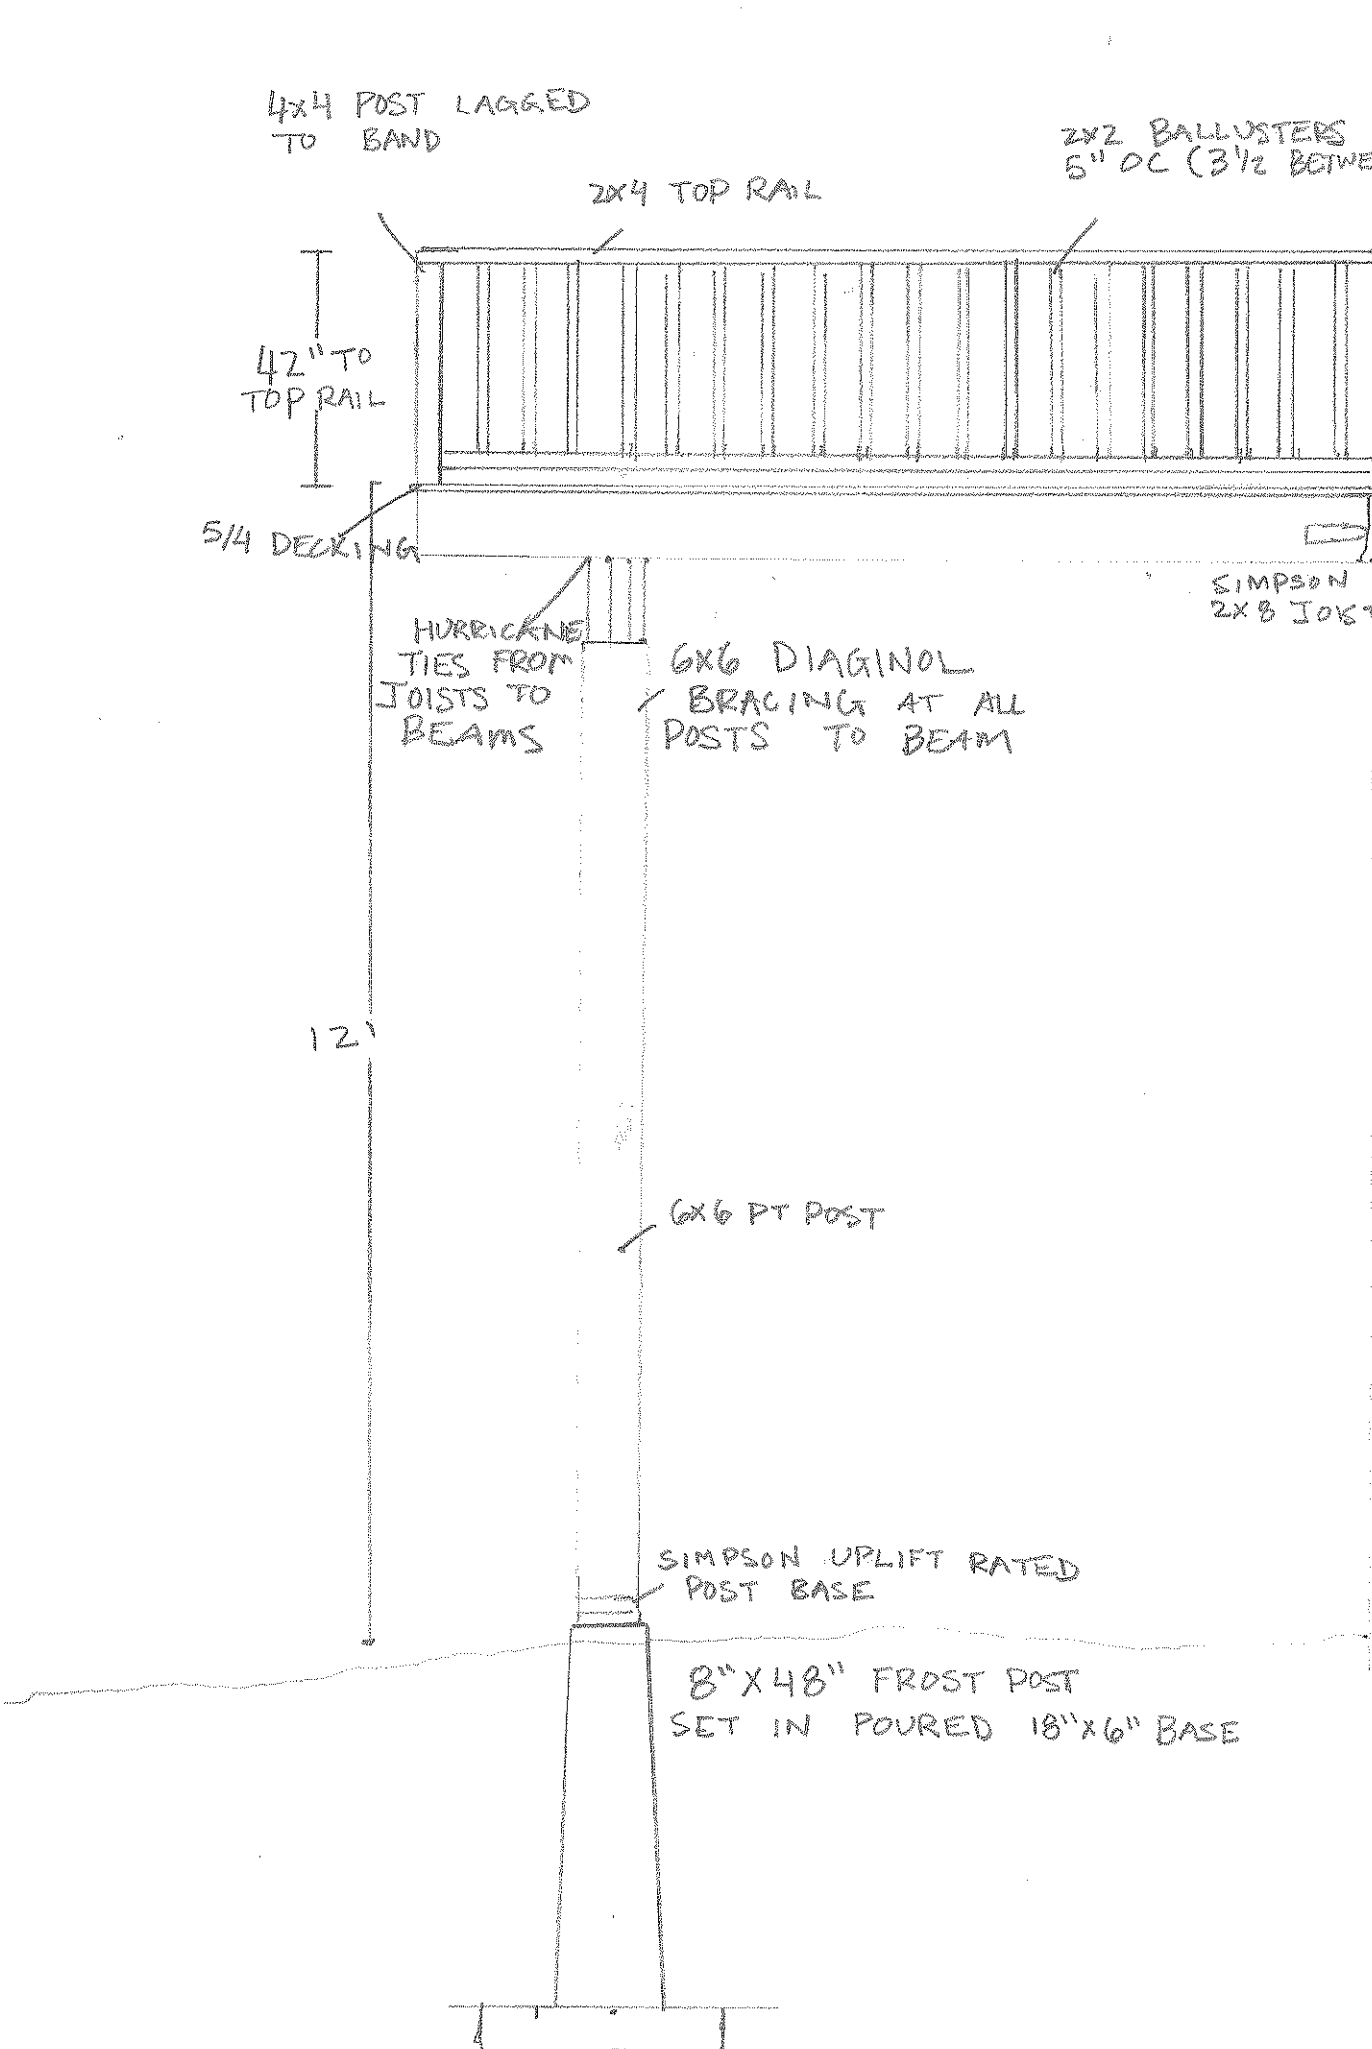 4x4 POST LAGGED
TO BAND
2x2 BALLUSTERS
5" OC (3 1/2 BETWE
2x4 TOP RAIL
42" TO
TOP RAIL
5/4 DECKING
SIMPSON
2x8 JOIST
HURRICANE
TIES FROM
JOISTS TO
BEAMS
6x6 DIAGINOL
BRACING AT ALL
POSTS TO BEAM
12'
6x6 PT POST
SIMPSON UPLIFT RATED
POST BASE
8" X 48" FROST POST
SET IN POURED 18" X 6" BASE